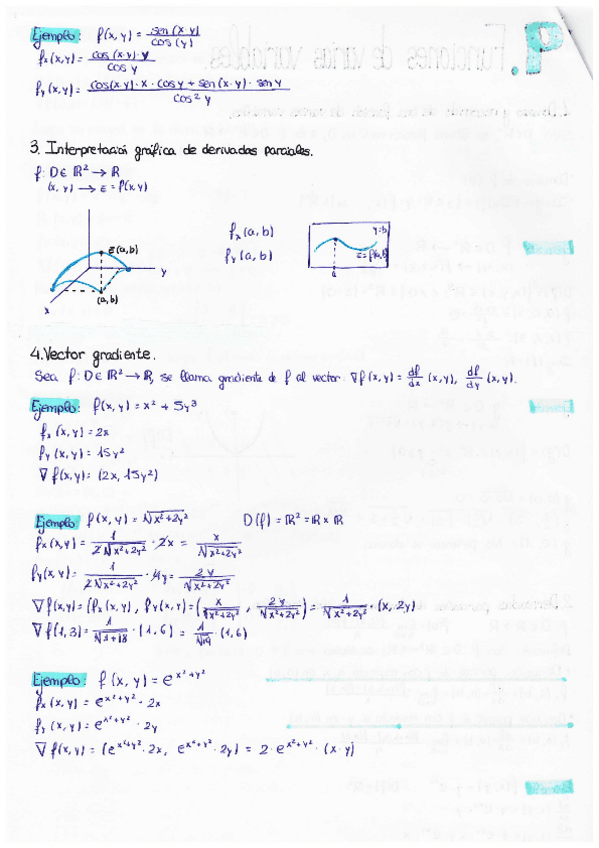 Ejemplo: f(x,y) = sen(x·y) / cos(y)
fx(x,y) = cos(x·y)·y / cos y
fy(x,y) = cos(x·y)·x·cos y + sen(x·y)·sen y / cos² y
3. Interpretació gráfica de derivadas parciales.
f: D∈ℝ² → ℝ
(x,y) → z = f(x,y)
z(a,b)
y
(a,b)
x
fx(a,b)
fy(a,b)
y=b
z=f(a,b)
a
4. Vector gradiente.
Sea f: D∈ℝ² → ℝ, se llama gradiente de f al vector: ∇f(x,y) = df/dx (x,y), df/dy (x,y).
Ejemplo: f(x,y) = x² + 5y³
fx(x,y) = 2x
fy(x,y) = 15y²
∇f(x,y) = (2x, 15y²)
Ejemplo: f(x,y) = √x²+2y² D(f) = ℝ² = ℝ×ℝ
fx(x,y) = 1 / 2√x²+2y² · 2x = x / √x²+2y²
fy(x,y) = 1 / 2√x²+2y² · 4y = 2y / √x²+2y²
∇f(x,y) = (fx(x,y), fy(x,y) = (x / √x²+2y², 2y / √x²+2y²) = 1 / √x²+2y² · (x, 2y)
∇f(1,3) = 1 / √1+18 · (1,6) = 1 / √19 · (1,6)
Ejemplo: f(x,y) = e^x²+y²
fx(x,y) = e^x²+y² · 2x
fy(x,y) = e^x²+y² · 2y
∇f(x,y) = (e^x²+y² · 2x, e^x²+y² · 2y) = 2·e^x²+y² · (x·y)